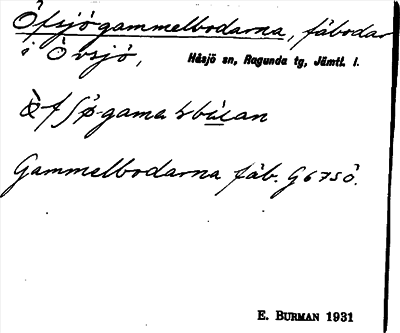 Öfsjögammelbodarna, fäbodar
i Övsjö, Håsjö sn, Ragunda tg, Jämtl. l.
Gammelbodarna fäb. G675ö.
E. BURMAN 1931